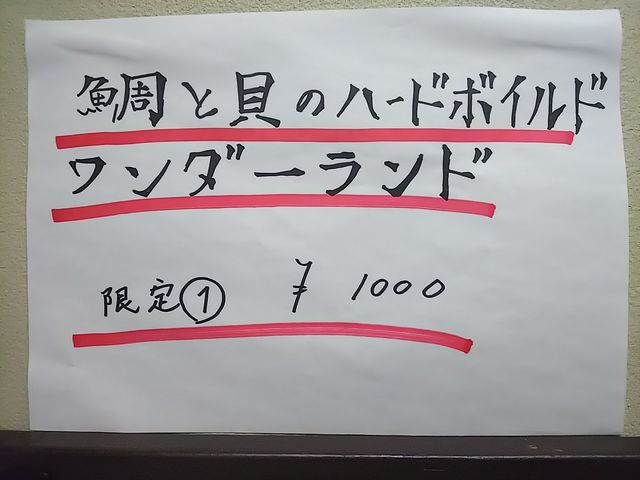 鯛と貝のハードボイルド
ワンダーランド
限定① ¥1000